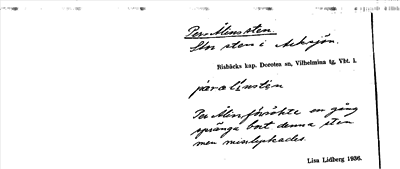 Per Ålins sten.
Stor sten i Arksjön.
Risbäcks kap. Dorotea sn, Vilhelmina tg, Vbt. l.
Per Ålin försökte en gång
spränga bort denna sten
men misslyckades.
Lisa Lidberg 1936.